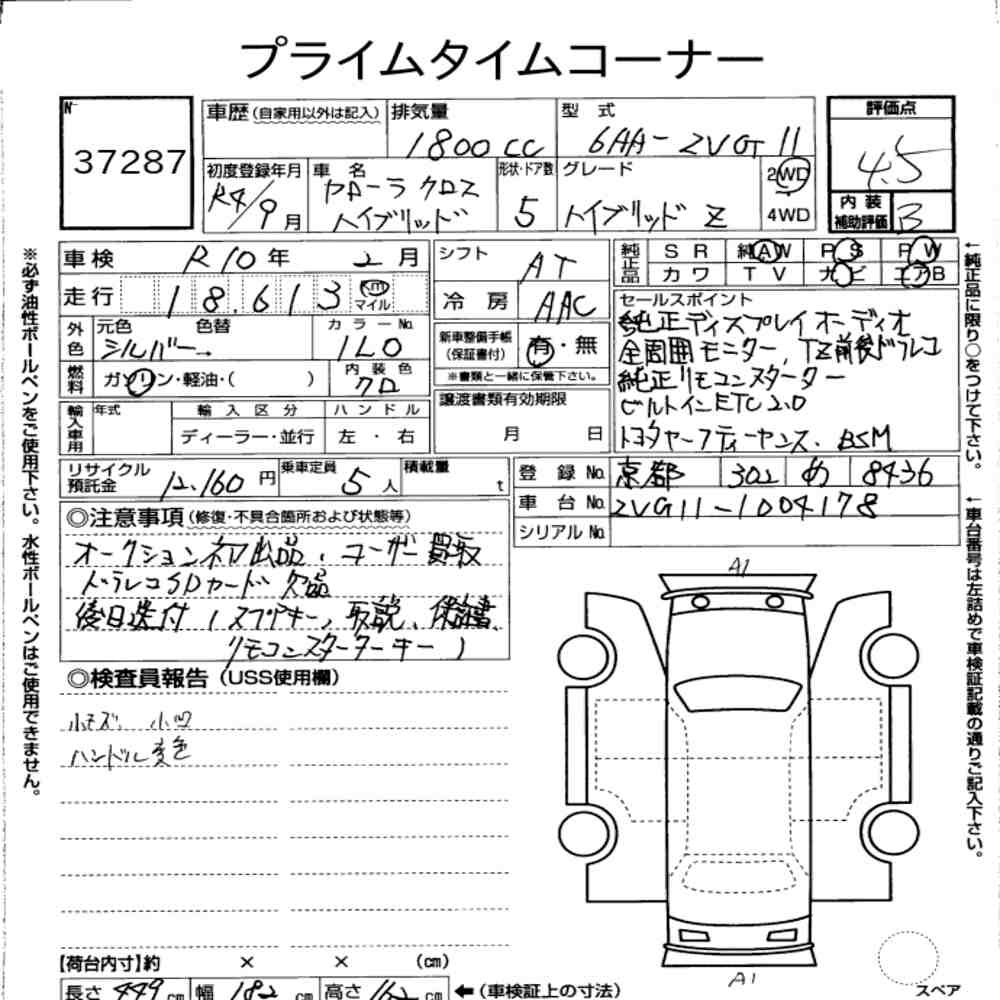 プライムタイムコーナー
No 37287
車歴(自家用以外は記入)
排気量 1800cc
型式 6AA-ZVG11
評価点 4.5
初度登録年月 R4/9月
車名 カローラクロス ハイブリッド
形状・ドア数 5
グレード ハイブリッド Z
2WD
4WD
内装補助評価 B
車検 R10年 2月
シフト AT
純正品 SR 純AW PS PW
カワ TV ナビ エアB
走行 18,613 km マイル
冷房 AAC
セールスポイント
純正ディスプレイオーディオ
全周囲モニター, TZ前後ドラレコ
純正リモコンスターター
ビルトインETC2.0
トヨタセーフティーセンス. BSM
外色 元色 シルバー 色替
カラーNo. 1L0
新車整備手帳(保証書付) 有・無
※書類と一緒に保管下さい。
燃料 ガソリン・軽油・( )
内装色 クロ
譲渡書類有効期限
月 日
輸入車用 年式 輸入区分 ハンドル
ディーラー・並行 左・右
リサイクル預託金 12,160円
乗車定員 5人
積載量 t
登録No. 京都 302 め 8436
車台No. ZVG11-1004178
シリアルNo.
◎注意事項(修復・不具合箇所および状態等)
オークション初出品, ユーザー買取
ドラレコSDカード 欠品
後日送付(スプキー, 取説, 保証書
リモコンスターターキー)
◎検査員報告(USS使用欄)
小キズ, 小凹
ハンドル変色
A1
A1
【荷台内寸】約 × × (cm)
長さ 449cm 幅 182cm 高さ 162cm
←(車検証上の寸法)
スペア
※必ず油性ボールペンをご使用下さい。水性ボールペンはご使用できません。
←純正品に限り○をつけて下さい。
←車台番号は左詰めで車検証記載の通りご記入下さい。